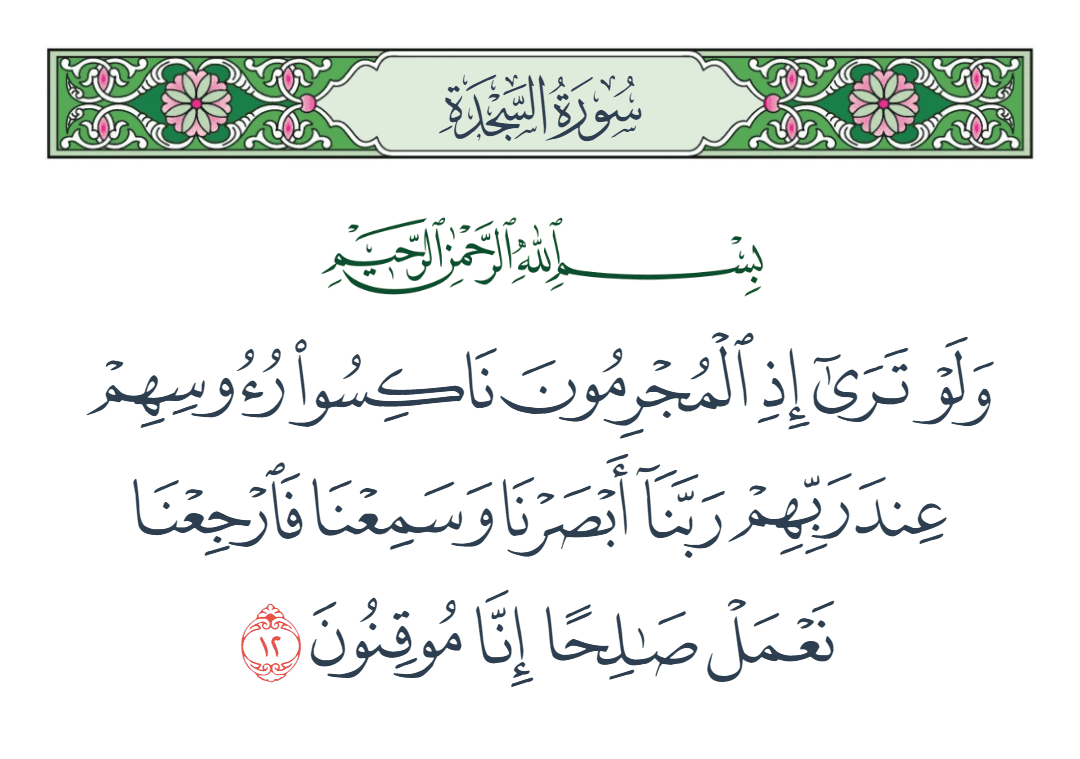 سُورَةُ السَّجْدَةِ
بِسْمِ ٱللَّهِ ٱلرَّحْمَٰنِ ٱلرَّحِيمِ
وَلَوْ تَرَىٰٓ إِذِ ٱلْمُجْرِمُونَ نَاكِسُوا۟ رُءُوسِهِمْ
عِندَ رَبِّهِمْ رَبَّنَآ أَبْصَرْنَا وَسَمِعْنَا فَٱرْجِعْنَا
نَعْمَلْ صَٰلِحًا إِنَّا مُوقِنُونَ ١٢